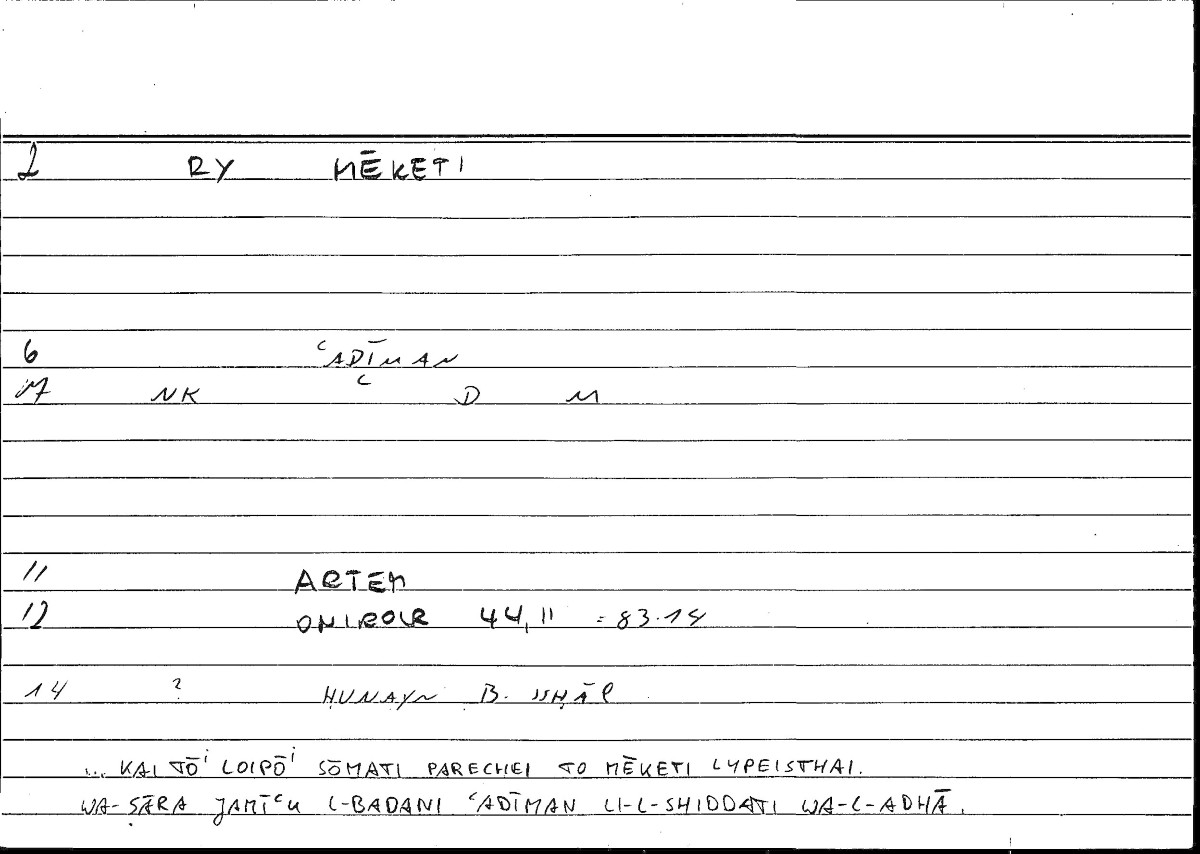 2 RY MĒKETI
6 ʿADĪMAN
17 NK ʿ D M
11 ARTEM
12 ONIROCR 44,11 = 83.14
14 ? ḤUNAYN B. ISḤĀQ
... KAI TŌⁱ LOIPŌⁱ SŌMATI PARECHEI TO MĒKETI LYPEISTHAI.
WA-ṢĀRA JAMĪʿU L-BADANI ʿADĪMAN LI-L-SHIDDATI WA-L-ADHĀ.